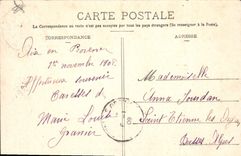 CARTE POSTALE
La Correspondance au recto n'est pas acceptée par tous les pays étrangers (Se renseigner à la Poste).
CORRESPONDANCE
ADRESSE
Aix en Provence
1er novembre 1908
Affectueux souvenir
Caresses de
Marie Louise
Granier
Mademoiselle
Anne Jourdan
Saint Etienne les Orgues
Basses Alpes